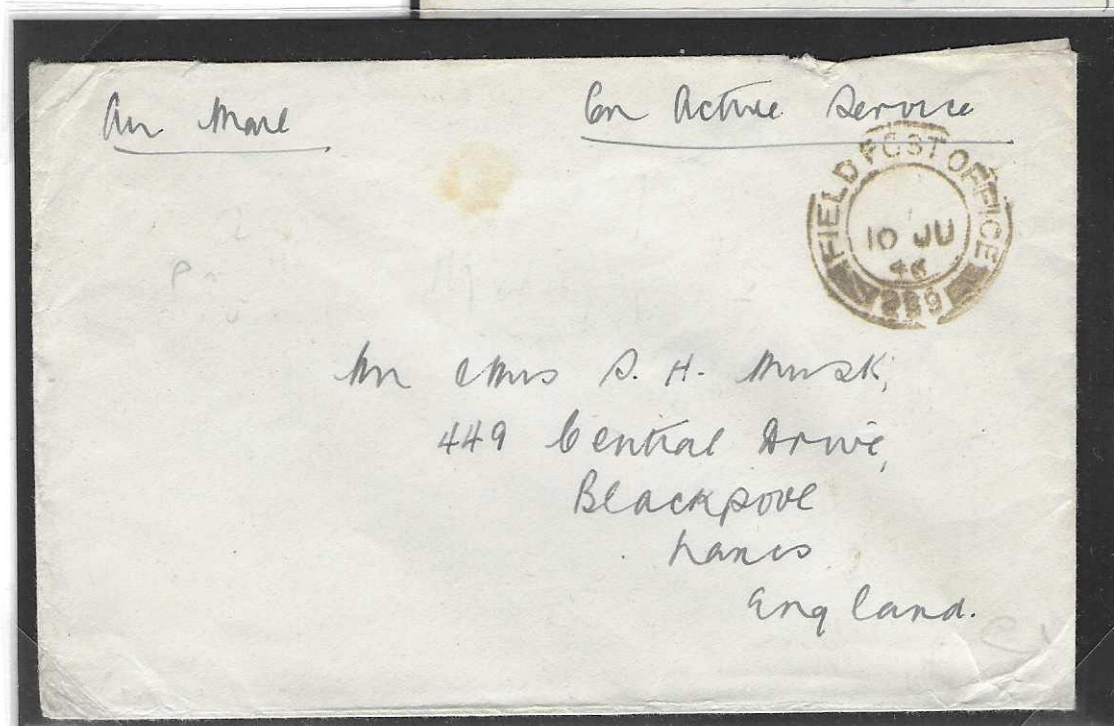 Air Mail
On Active Service
FIELD POST OFFICE
10 JU
46
Mr & Mrs S. H. Musk,
449 Central Drive,
Blackpool
Lancs
England.